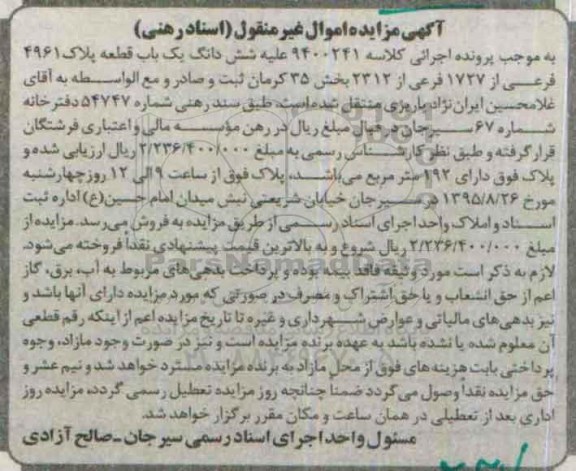 آگهی مزایده اموال غیر منقول (اسناد رهنی)
به موجب پرونده اجرائی کلاسه ۹۴۰۰۲۴۱ علیه شش دانگ یک باب قطعه پلاک ۴۹۶۱
فرعی از ۱۷۲۷ فرعی از ۲۳۱۲ بخش ۳۵ کرمان ثبت و صادر و مع الواسطه به آقای
غلامحسین ایران نژاد پاریزی منتقل شده است، طبق سند رهنی شماره ۵۴۷۴۷ دفترخانه
شماره ۶۷ سیرجان در قبال مبلغ ریال در رهن مؤسسه مالی و اعتباری فرشتگان
قرار گرفته و طبق نظر کارشناس رسمی به مبلغ ۲/۲۳۶/۴۰۰/۰۰۰ ریال ارزیابی شده و
پلاک فوق دارای ۱۹۲ متر مربع می‌باشد، پلاک فوق از ساعت ۹ الی ۱۲ روز چهارشنبه
مورخ ۱۳۹۵/۸/۲۶ در سیرجان خیابان شریعتی نبش میدان امام حسین(ع) اداره ثبت
اسناد و املاک واحد اجرای اسناد رسمی از طریق مزایده به فروش می‌رسد. مزایده از
مبلغ ۲/۲۳۶/۴۰۰/۰۰۰ ریال شروع و به بالاترین قیمت پیشنهادی نقداً فروخته می‌شود.
لازم به ذکر است مورد وثیقه فاقد بیمه بوده و پرداخت بدهی‌های مربوط به آب، برق، گاز
اعم از حق انشعاب و یا حق اشتراک و مصرف در صورتی که مورد مزایده دارای آنها باشد و
نیز بدهی‌های مالیاتی و عوارض شهرداری و غیره تا تاریخ مزایده اعم از اینکه رقم قطعی
آن معلوم شده یا نشده باشد به عهده برنده مزایده است و نیز در صورت وجود مازاد، وجوه
پرداختی بابت هزینه‌های فوق از محل مازاد به برنده مزایده مسترد خواهد شد و نیم عشر و
حق مزایده نقداً وصول می‌گردد ضمناً چنانچه روز مزایده تعطیل رسمی گردد، مزایده روز
اداری بعد از تعطیلی در همان ساعت و مکان مقرر برگزار خواهد شد.
مسئول واحد اجرای اسناد رسمی سیرجان ـ صالح آزادی
ParsNamadData